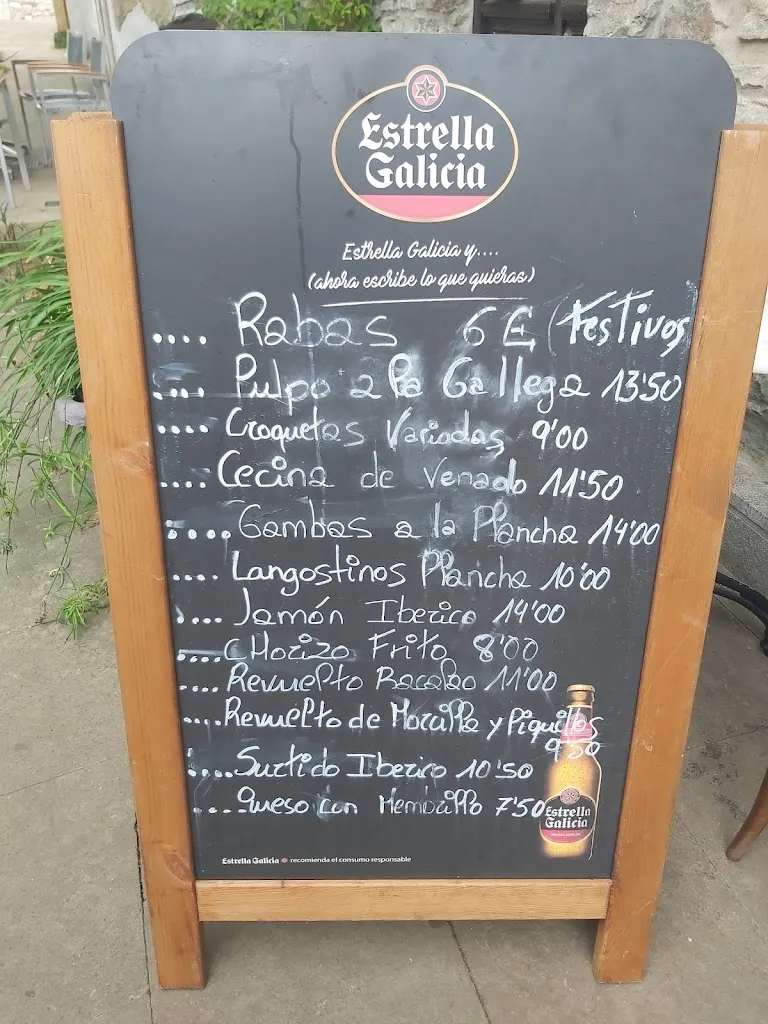 Estrella
Galicia
Estrella Galicia y....
(ahora escribe lo que quieras)
.... Rabas 6 E (Festivos
.... Pulpo a la Gallega 13'50
.... Croquetas Variadas 9'00
.... Cecina de Venado 11'50
.... Gambas a la Plancha 14'00
.... Langostinos Plancha 10'00
.... Jamón Iberico 14'00
.... CHorizo Frito 8'00
.... Revuelto Bacalao 11'00
.... Revuelto de Morcilla y Piquillos
9'50
.... Surtido Iberico 10'50
.... Queso con Membrillo 7'50
Estrella
Galicia
Estrella Galicia recomienda el consumo responsable